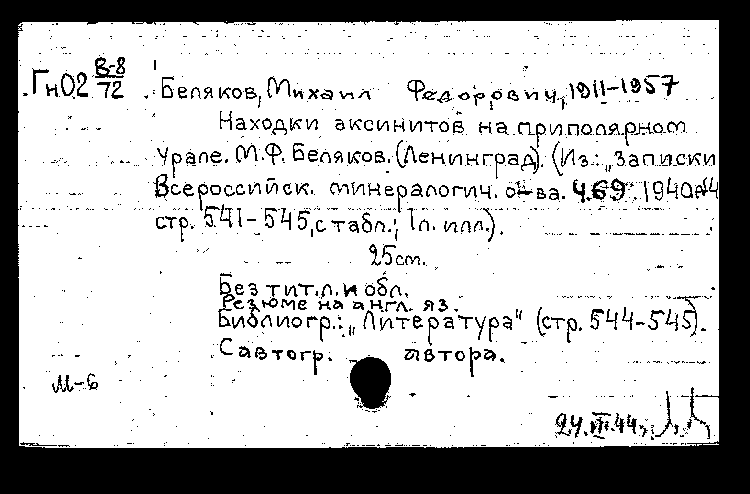 ГнО2 В-8/72 Беляков, Михаил Федорович, 1911-1957
Находки аксинитов на приполярном
Урале. М.Ф. Беляков. (Ленинград). (Из: „Записки
Всероссийск. минералогич. о-ва. ч.69. 1940 №4
стр. 541-545, с табл.; 1л. илл.).
25см.
Без тит. л. и обл.
Резюме на англ. яз.
Библиогр.: „Литература" (стр. 544-545).
С автогр. автора.
М-6
24.III.44.